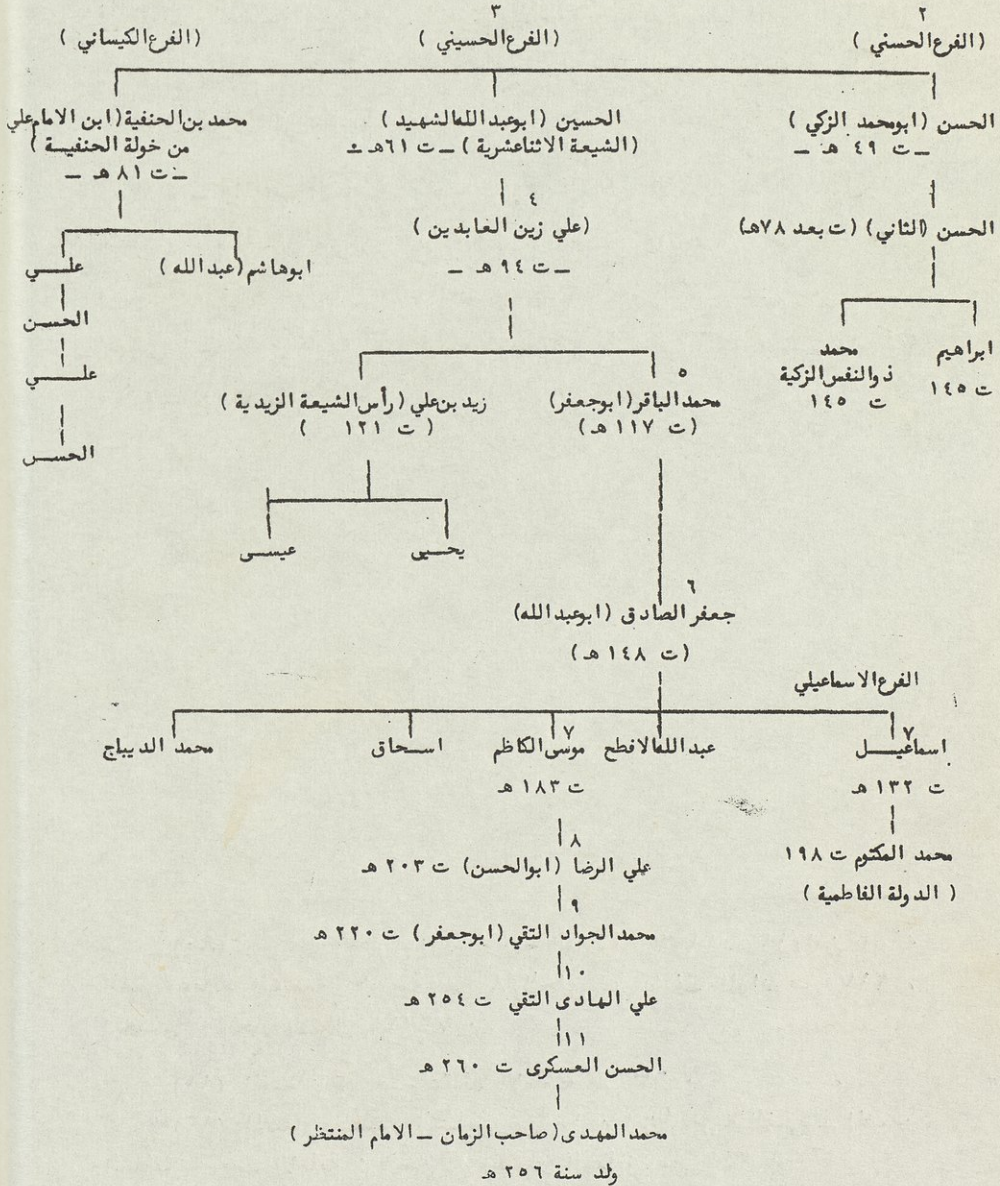 ٢
٣
(الفرع الحسني)
(الفرع الحسيني)
(الفرع الكيساني)
الحسن (ابومحمد الزكي)
ـ ت ٤٩ هـ ـ
الحسين (ابوعبد الله الشهيد)
(الشيعة الاثناعشرية) ـ ت ٦١ هـ ـ
محمد بن الحنفية (ابن الامام علي
من خولة الحنفيـة)
ـ ت ٨١ هـ ـ
الحسن (الثاني) (ت بعد ٧٨هـ)
٤
(علي زين العابدين)
ـ ت ٩٤ هـ ـ
ابوهاشم (عبد الله)
علـــي
الحسـن
علـــي
الحســن
ابراهيم
ت ١٤٥
محمد
ذوالنفس الزكية
ت ١٤٥
٥
محمد الباقر (ابوجعفر)
(ت ١١٧ هـ)
زيد بن علي (رأس الشيعة الزيدية)
(ت ١٢١ )
يحــيى
عيســى
٦
جعفر الصادق (ابوعبد الله)
(ت ١٤٨ هـ)
الفرع الاسماعيلي
٧
اسماعيــل
ت ١٣٢ هـ
عبد الله الافطح
٧
موسى الكاظم
ت ١٨٣ هـ
اســحاق
محمد الديباج
محمد المكتوم ت ١٩٨
(الدولة الفاطمية)
٨
علي الرضا (ابوالحسن) ت ٢٠٣ هـ
٩
محمد الجواد التقي (ابوجعفر) ت ٢٢٠ هـ
١٠
علي الهادى التقي ت ٢٥٤ هـ
١١
الحسن العسكرى ت ٢٦٠ هـ
محمد المهدى (صاحب الزمان ـ الامام المنتظر)
ولد سنة ٢٥٦ هـ